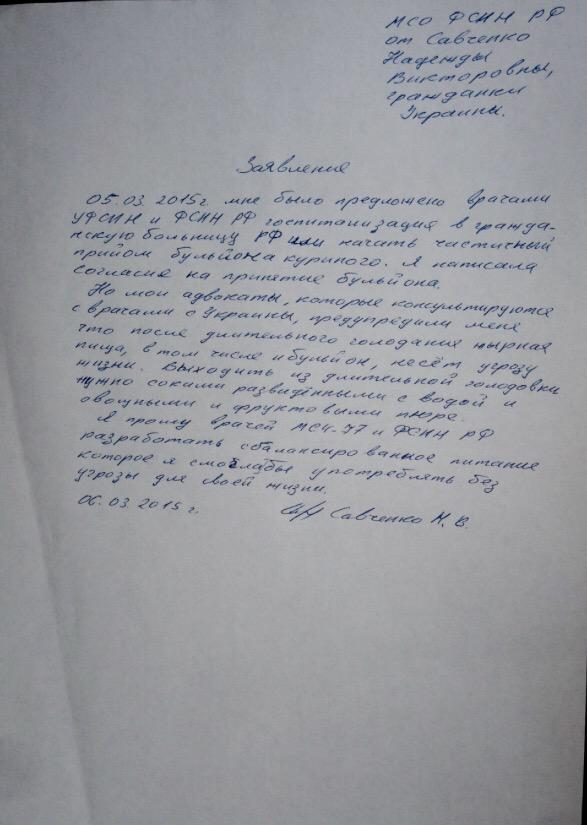 МСО ФСИН РФ
от Савченко
Надежды
Викторовны,
гражданки
Украины.
Заявление
05.03.2015г. мне было предложено врачами
УФСИН и ФСИН РФ госпитализация в гражда-
нскую больницу РФ или начать частичный
прийом бульйона куриного. Я написала
согласие на принятие бульйона.
Но мои адвокаты, которые консультируются
с врачами с Украины, предупредили меня
что после длительного голодания жырная
пища, в том числе и бульйон, несёт угрозу
жизни. Выходить из длительной голодовки
нужно соками разведёнными с водой и
овощными и фруктовыми пюре.
Я прошу врачей МСЧ-77 и ФСИН РФ
разработать сбалансированное питание
которое я смоглабы употреблять без
угрозы для моей жизни.
06.03.2015г. Савченко Н.В.